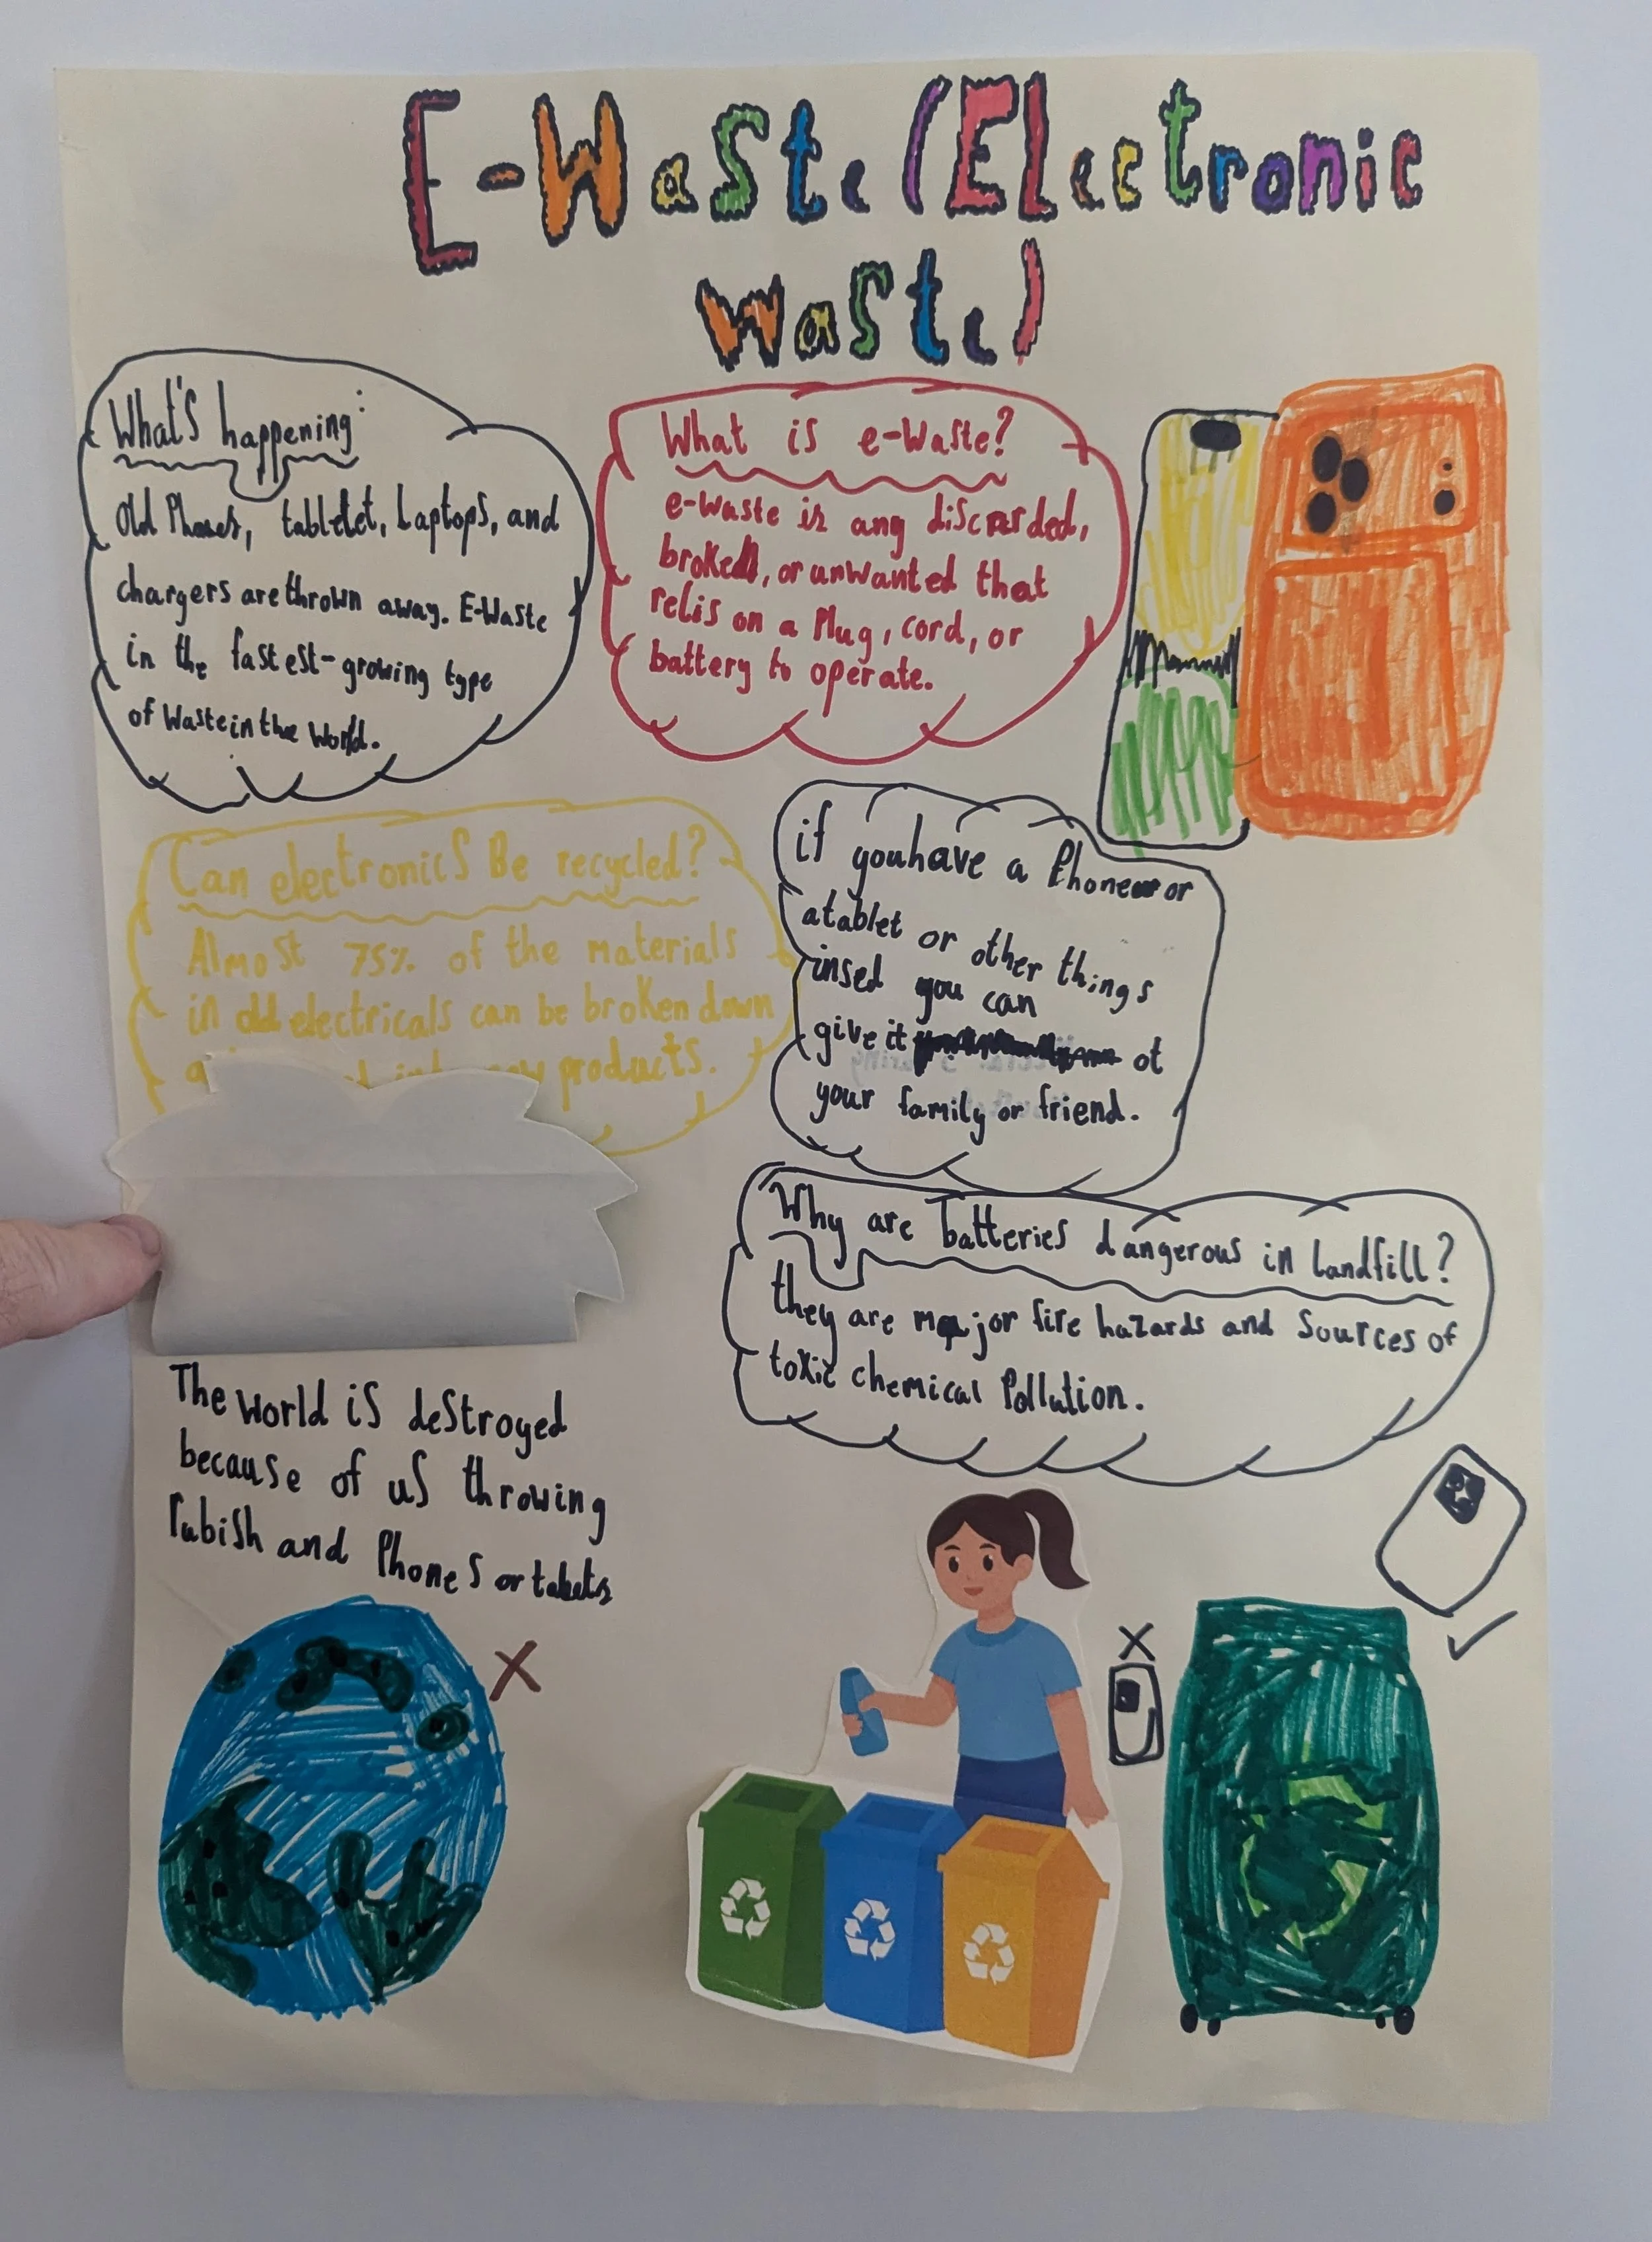 E-Waste (Electronic
waste)
What's happening:
Old Phones, tabletet, Laptops, and
chargers are thrown away. E-Waste
in the fastest-growing type
of Waste in the World.
What is e-Waste?
e-waste is any discrarded,
broken, or unwanted that
relis on a Plug, cord, or
battery to operate.
Can electronics Be recycled?
Almost 75% of the materials
in old electricals can be broken down
products.
if you have a Phone or
a tablet or other things
insed you can
give it ot
your family or friend.
Why are batteries dangerous in landfill?
they are major fire hazards and Sources of
toxic chemical Pollution.
The World is destroyed
because of us throwing
rubish and Phones or tablets